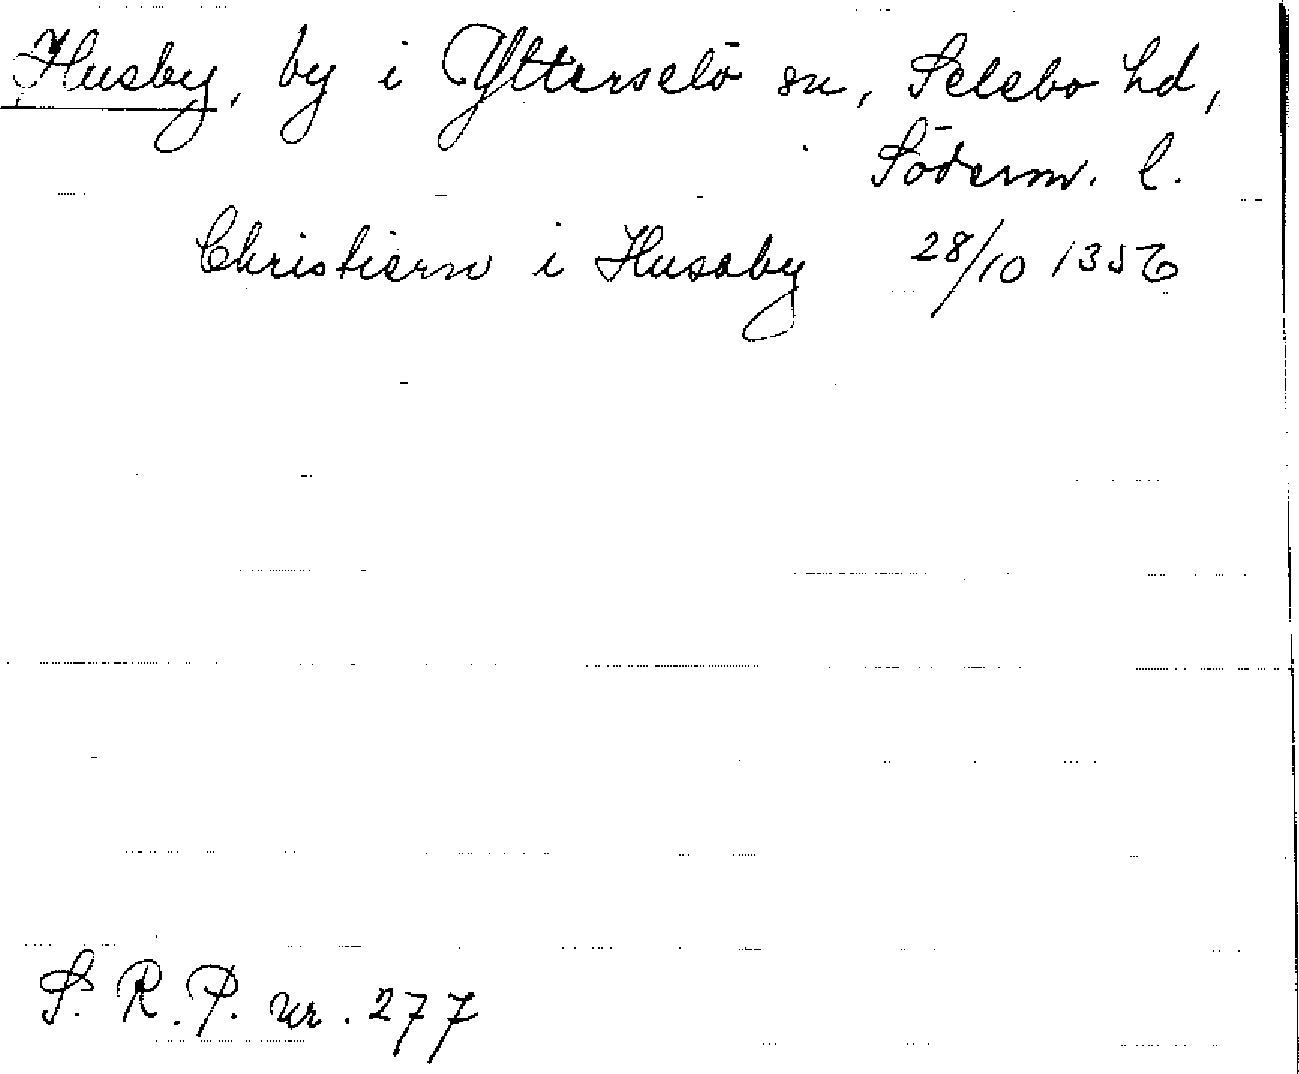 Husby, by i Ytterselö sn, Selebo hd,
Söderm. l.
Christiern i Husaby 28/10 1356
S. R. P. nr. 277